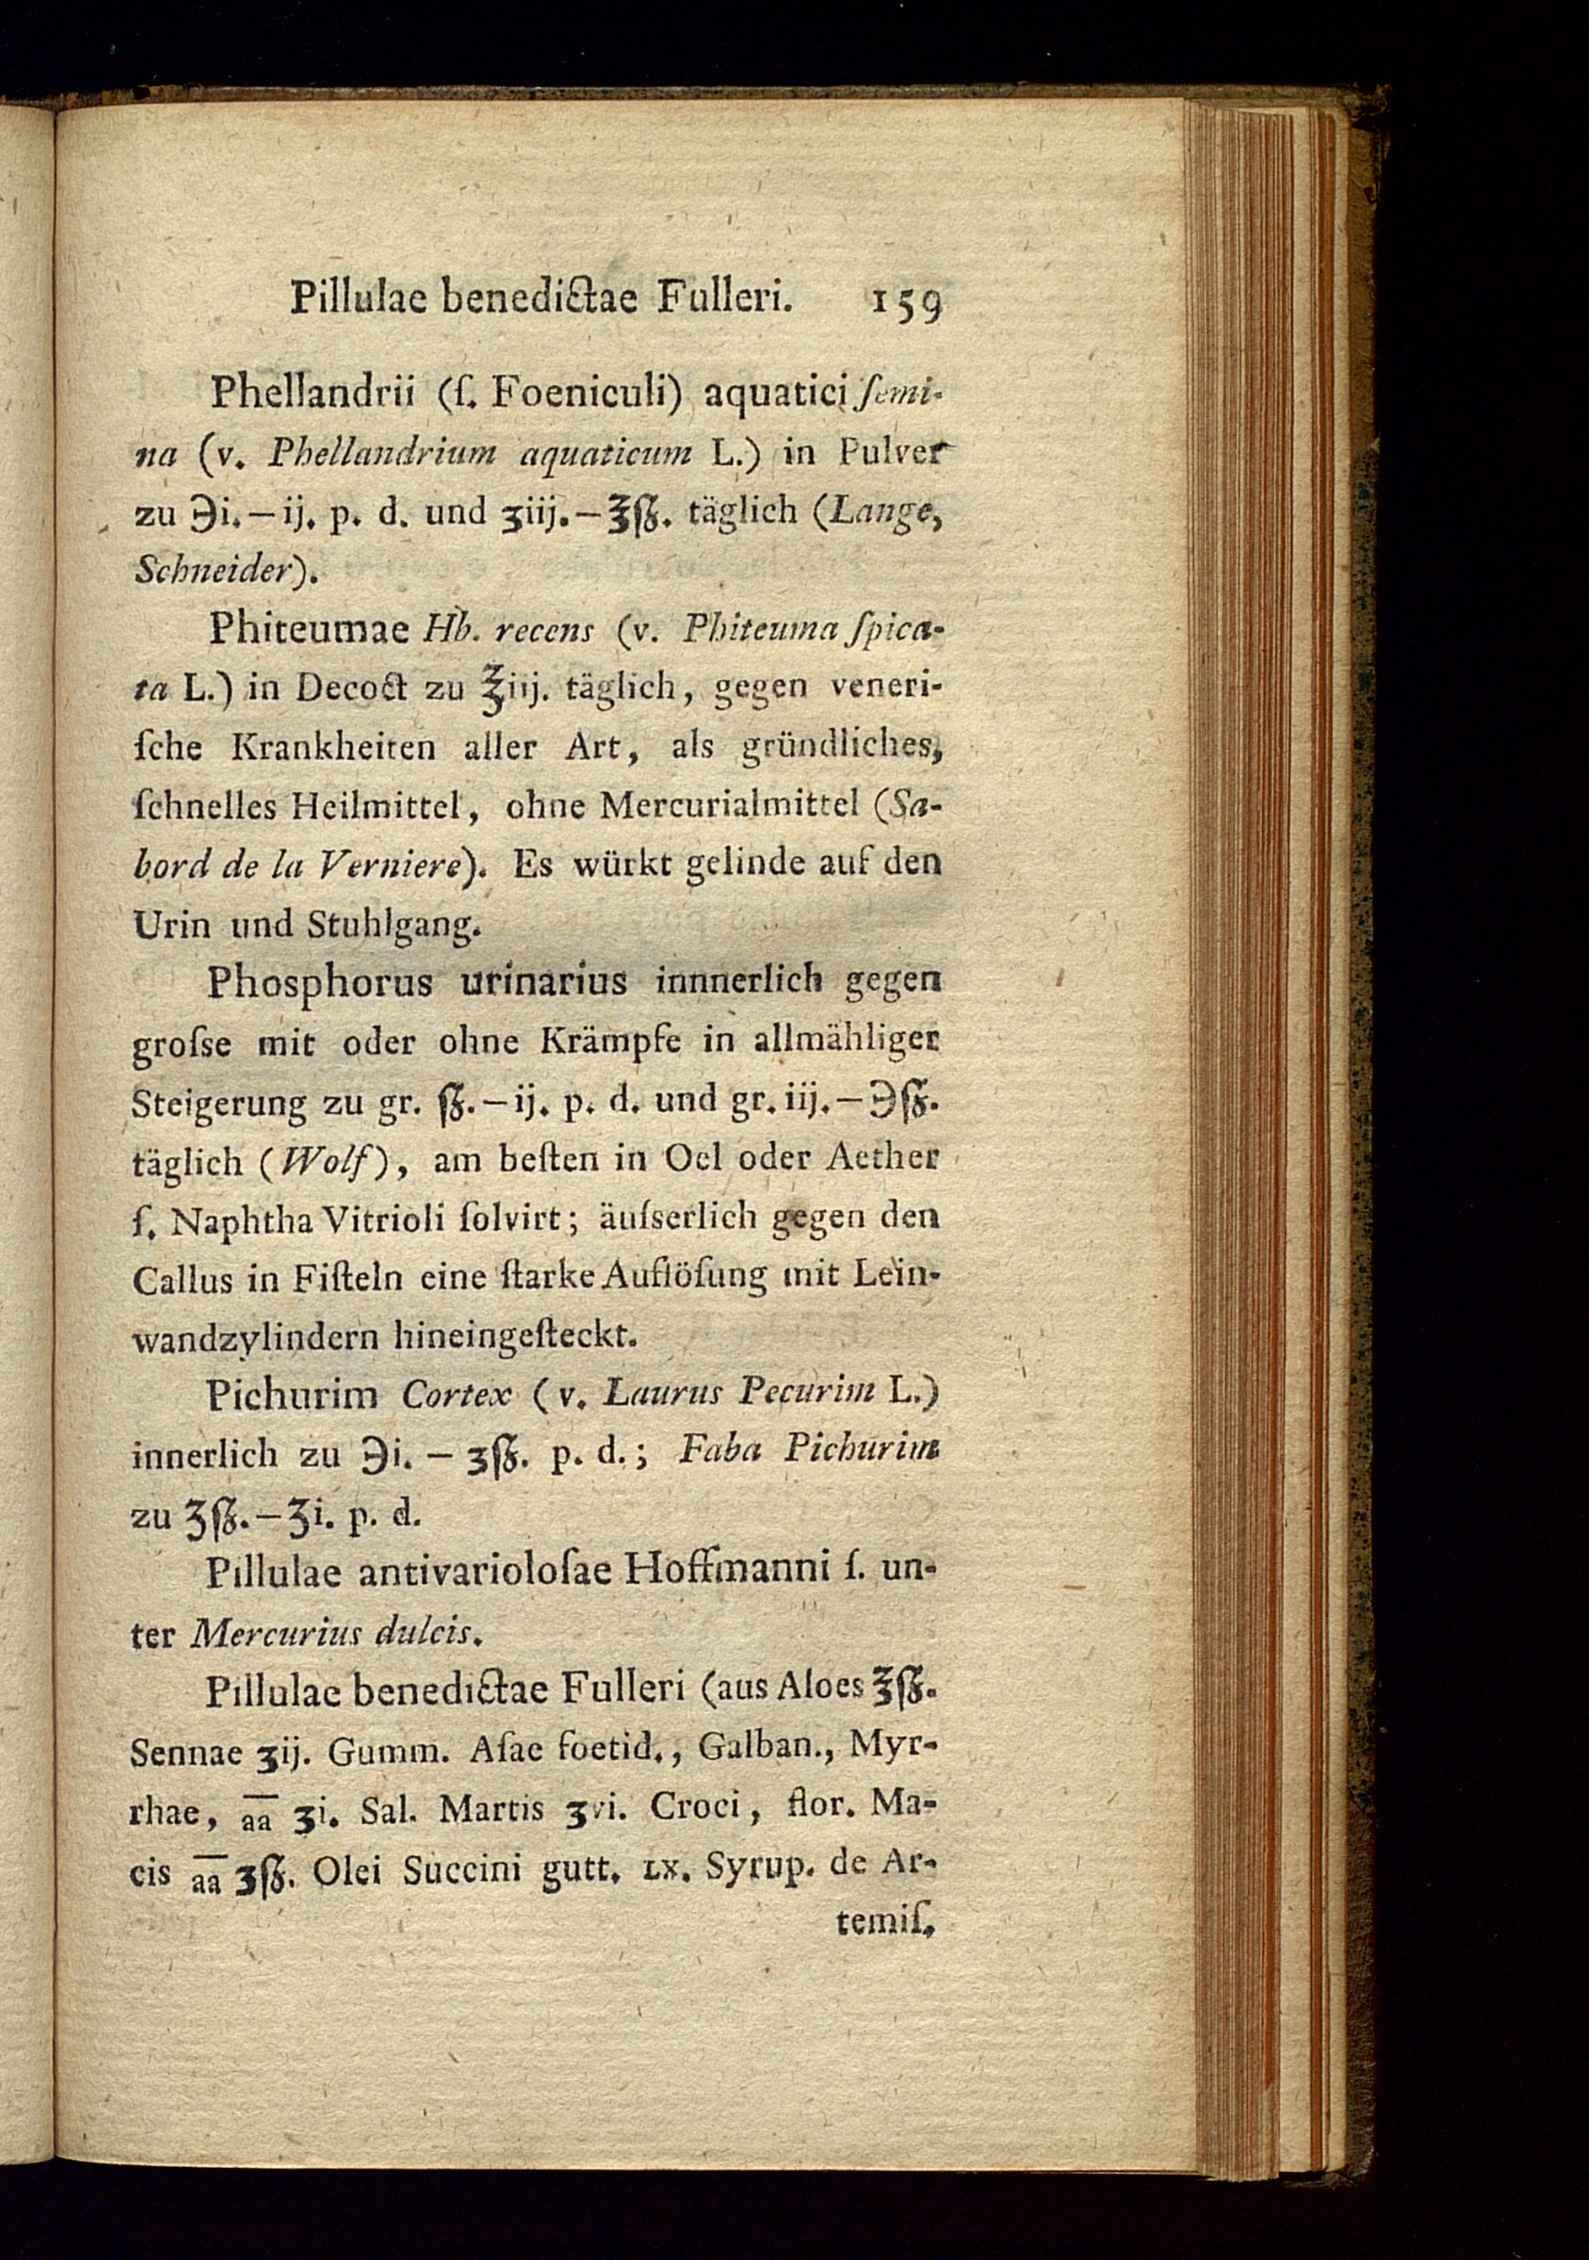 Pillulae benedictae Fulleri. 159
Phellandrii (ſ. Foeniculi) aquatici ſemi-
na (v. Phellandrium aquaticum L.) in Pulver
zu ℈i.—ij. p. d. und ʒiij.—℥ß. täglich (Lange,
Schneider).
Phiteumae Hb. recens (v. Phiteuma ſpica-
ta L.) in Decoct zu ℥iij. täglich, gegen veneri-
ſche Krankheiten aller Art, als gründliches,
ſchnelles Heilmittel, ohne Mercurialmittel (Sa-
bord de la Verniere). Es würkt gelinde auf den
Urin und Stuhlgang.
Phosphorus urinarius innnerlich gegen
groſse mit oder ohne Krämpfe in allmähliger
Steigerung zu gr. ß.—ij. p. d. und gr. iij.—℈ß.
täglich (Wolf), am beſten in Oel oder Aether
ſ. Naphtha Vitrioli ſolvirt; äuſserlich gegen den
Callus in Fiſteln eine ſtarke Auflöſung mit Lein-
wandzylindern hineingeſteckt.
Pichurim Cortex (v. Laurus Pecurim L.)
innerlich zu ℈i. — ʒß. p. d.; Faba Pichurim
zu ʒß.—ʒi. p. d.
Pillulae antivarioloſae Hoffmanni ſ. un-
ter Mercurius dulcis.
Pillulae benedictae Fulleri (aus Aloes ℥ß.
Sennae ʒij. Gumm. Aſae foetid., Galban., Myr-
rhae, a̅a̅ ʒi. Sal. Martis ʒvi. Croci, flor. Ma-
cis a̅a̅ ʒß. Olei Succini gutt. LX. Syrup. de Ar-
temiſ.